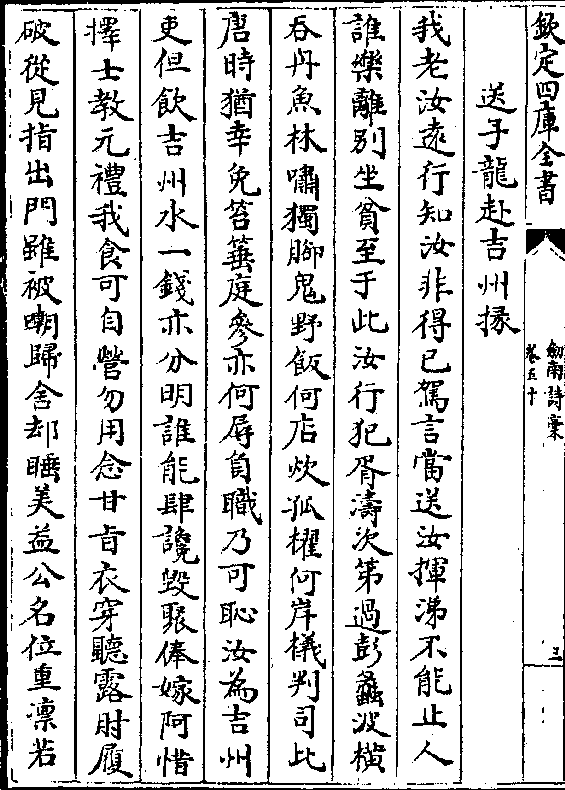 欽定四庫全書
劍南詩稾
卷五十
三
送子龍赴吉州掾
我老汝逺行知汝非得已駕言當送汝揮涕不能止人
誰樂離别坐貧至于此汝行犯胥濤次第過彭蠡波横
吞舟魚林嘯獨脚鬼野飯何店炊孤櫂何岸檥判司比
唐時猶幸免笞箠庭參亦何辱負職乃可恥汝為吉州
吏但飲吉州水一錢亦分明誰能肆讒毁聚俸嫁阿惜
擇士教元禮我食可自營勿用念甘㫖衣穿聽露肘履
破從見指出門雖被嘲歸舍却睡美益公名位重凛若